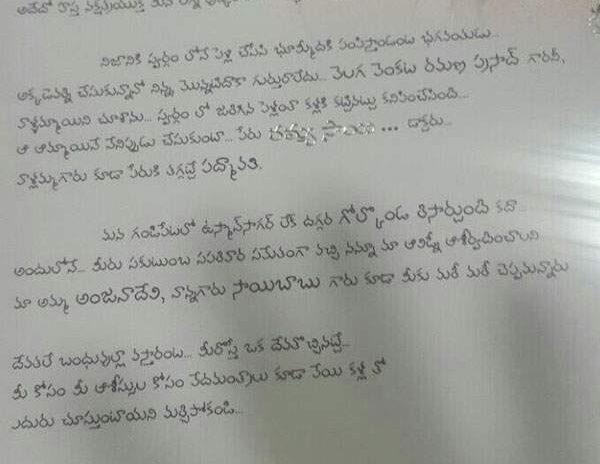 నిజానికి స్వర్గం లోనే పెళ్లి చేసేసి భూమ్మీదకి పంపిస్తాడంట భగవంతుడు...
అక్కడెవర్ని చేసుకున్నానో నిన్న మొన్నటిదాకా గుర్తురాలేదు... వెలగ వెంకట రమణ ప్రసాద్ గారని,
వాళ్ళమ్మాయిని చూశాను... స్వర్గం లో జరిగిన పెళ్లంతా కళ్లకి కట్టినట్టు కనిపించేసింది...
ఆ అమ్మాయినే నేనిప్పుడు చేసుకుంటా... పేరు ... డాక్టరు...
వాళ్లమ్మగారు కూడా పేరుకి తగ్గట్టే పద్మావతి.
మన గండిపేటలో ఉస్మాన్‌సాగర్ లేక్ దగ్గర గోల్కొండ రిసార్ట్సుంది కదా...
అందులోనే... మీరు సకుటుంబ సపరివార సమేతంగా వచ్చి నన్నూ మా ఆవిడ్నీ ఆశీర్వదించాలని
మా అమ్మ అంజనాదేవి, నాన్నగారు సాయిబాబు గారు కూడా మీకు మరీ మరీ చెప్పమన్నారు
దేవతలే బంధువుల్లా వస్తారంట... మీరొస్తే ఒక దేవుడొచ్చినట్టే...
మీ కోసం మీ ఆశీస్సుల కోసం వేదమంత్రాలు కూడా వేయి కళ్ల తో
ఎదురు చూస్తుంటాయని మర్చిపోకండి...